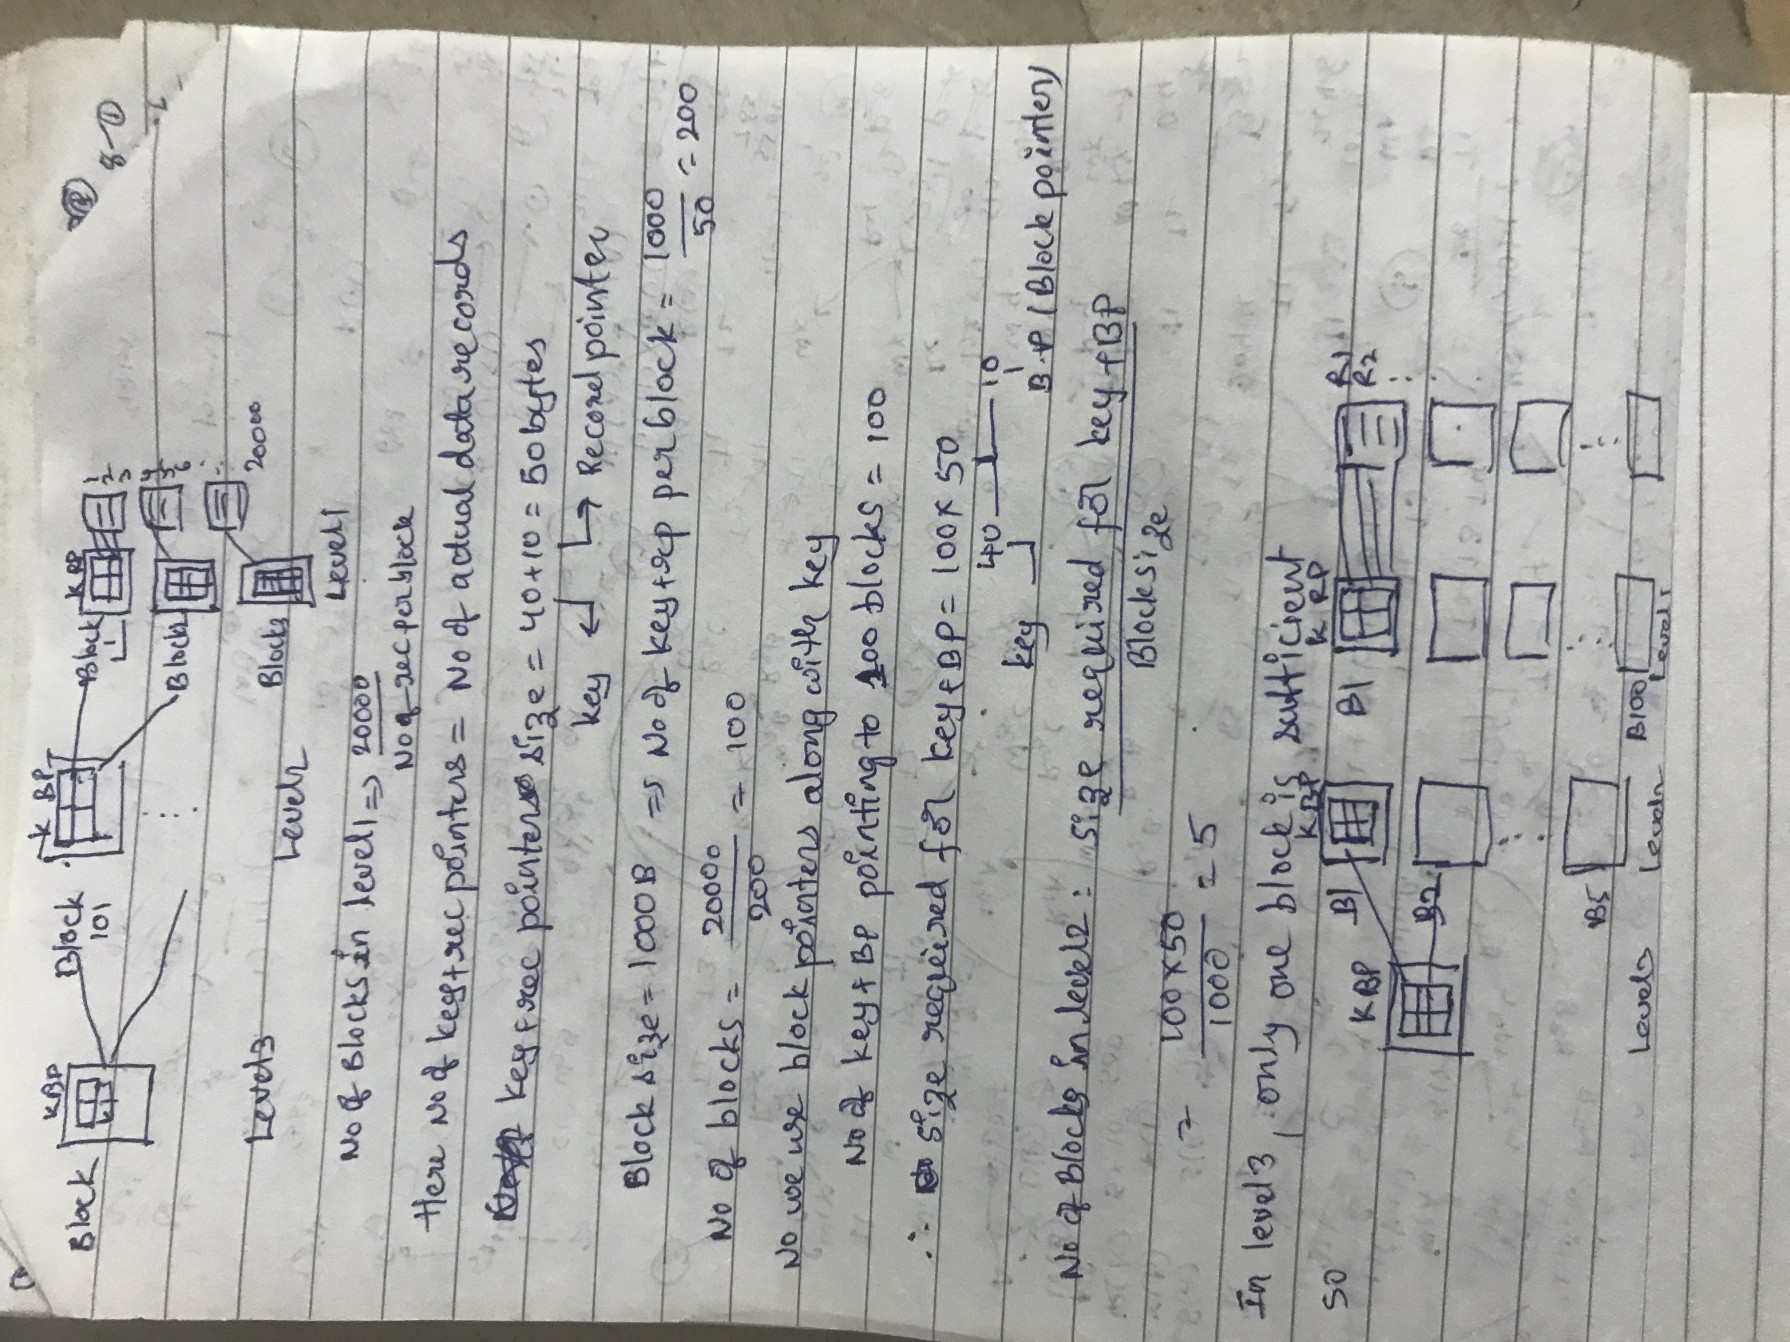 8-①
Block KBP Block 101 K BP Block KBP 1 2 3
Block 4 5 6
Blocks 20000
Level3 Level2 Level1
No of Blocks in level1 => 20000 / No of rec per block
Here No of key+rec pointers = No of actual data records
key+rec pointers size = 40+10 = 50 bytes
key Record pointer
Block size = 1000B => No of key+rp per block = 1000 / 50 = 200
No of blocks = 20000 / 200 = 100
No we use block pointers along with key
No of key+BP pointing to 100 blocks = 100
∴ size required for key+BP = 100 x 50
40 10
key B.P (Block pointer)
No of Blocks in level2 : size required for key+BP / Blocksize
= 100 x 50 / 1000 = 5
In level3, only one block is sufficient
so
K BP B1 K BP B1 K RP R1 R2
B2
B5 B100
Level3 Level2 Level1